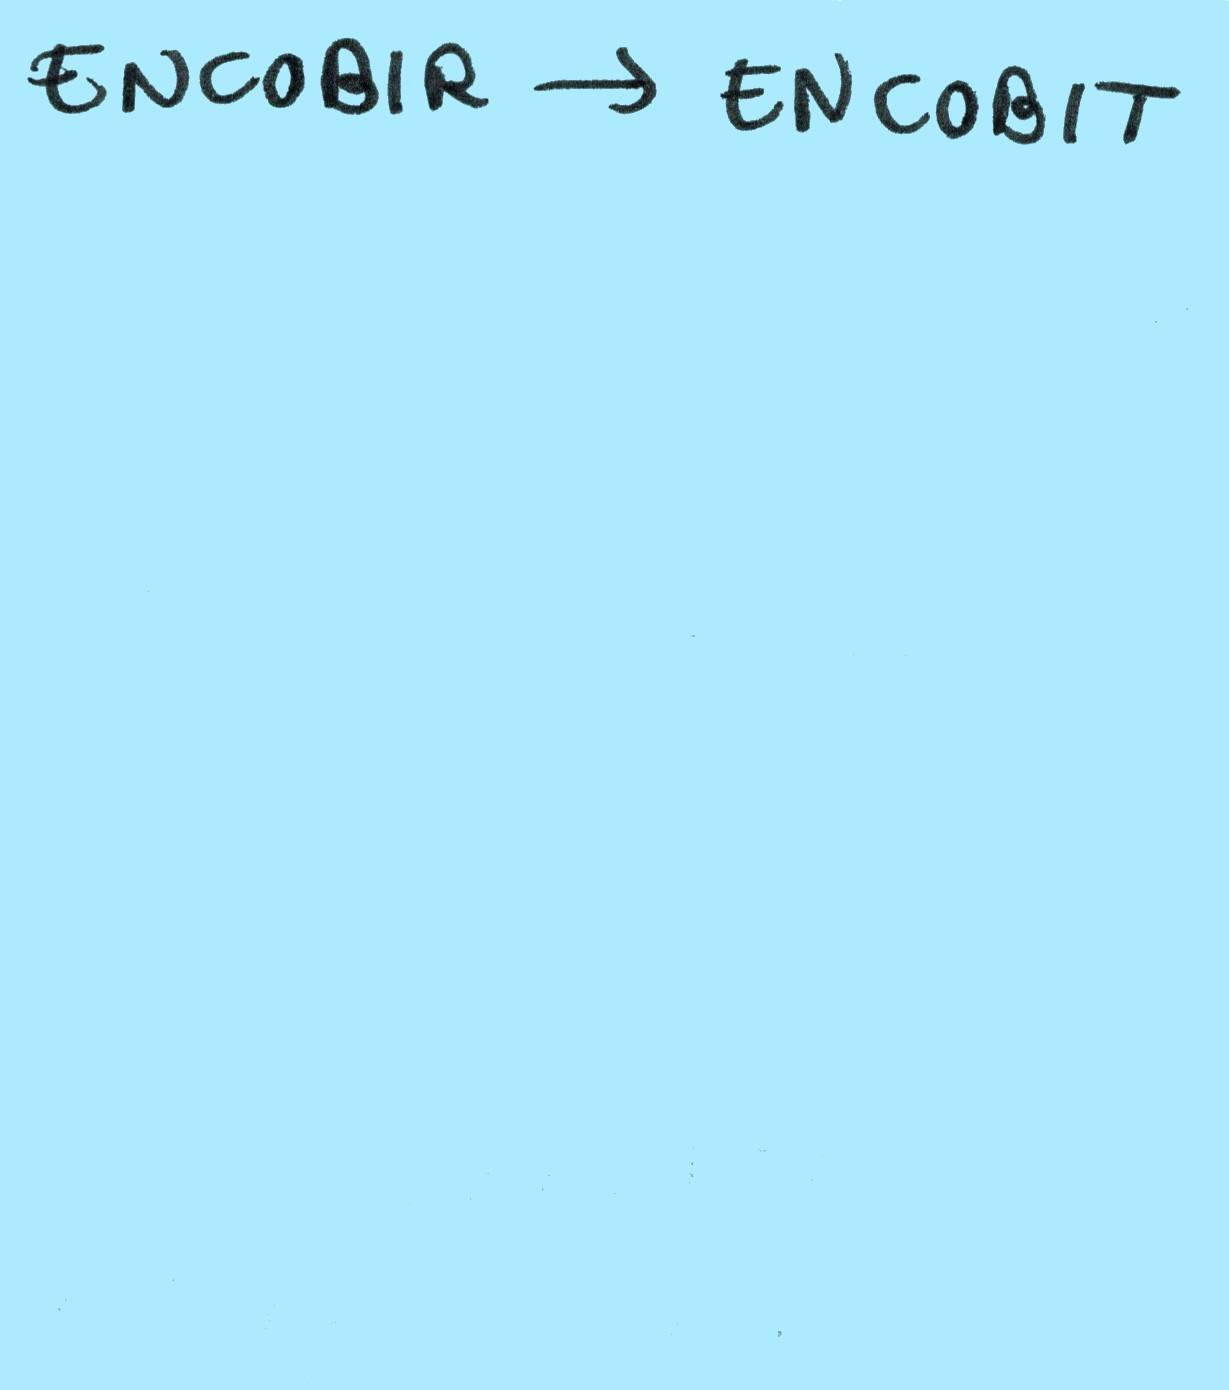 ENCOBIR → ENCOBIT